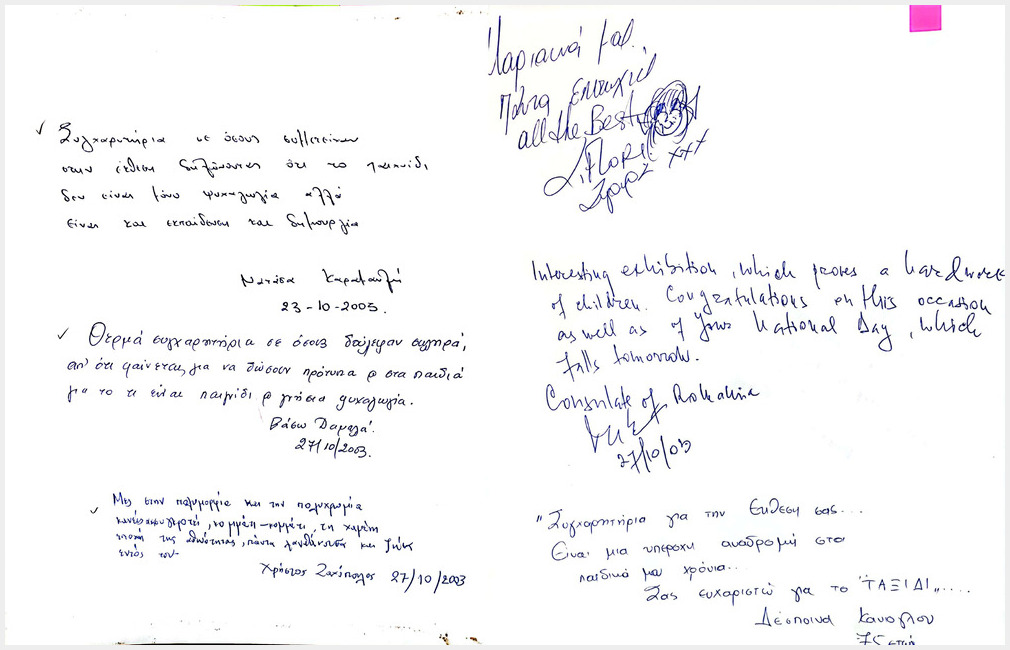 Συγχαρητήρια σε όσους συμμετείχαν
στην έκθεση δηλώνοντας ότι το παιχνίδι,
δεν είναι μόνο ψυχαγωγία αλλά
είναι και εκπαίδευση και δημιουργία
Νατάσα
23-10-2003.
Θερμά συγχαρητήρια σε όσους δούλεψαν σκληρά,
απ' ότι φαίνεται, για να δώσουν πρότυπα στα παιδιά
για το τι είναι παιχνίδι γνήσια ψυχαγωγία.
Βάσω Δαμαλά.
27/10/2003.
Μες στην πολυμορφία και την πολυχρωμία
κομμάτι-κομμάτι, τη χαμένη
εποχή της αθωότητας, πάντα και
εντός του
Χρήστος 27/10/2003
Μαριανά μου,
Πάντα επιτυχίες
all the Best
xxx
Interesting exhibition, which proves a hard work
of children. Congratulations on this occasion
as well as of your National Day, which
falls tomorrow.
Consulate of Romania
27/10/03
"Συγχαρητήρια για την Εκθεση σας...
Είναι μια υπεροχη αναδρομή στα
παιδικά μου χρόνια...
Σας ευχαριστώ για το "ΤΑΞΙΔΙ"....
Δέσποινα Κανογλου
75 ετών